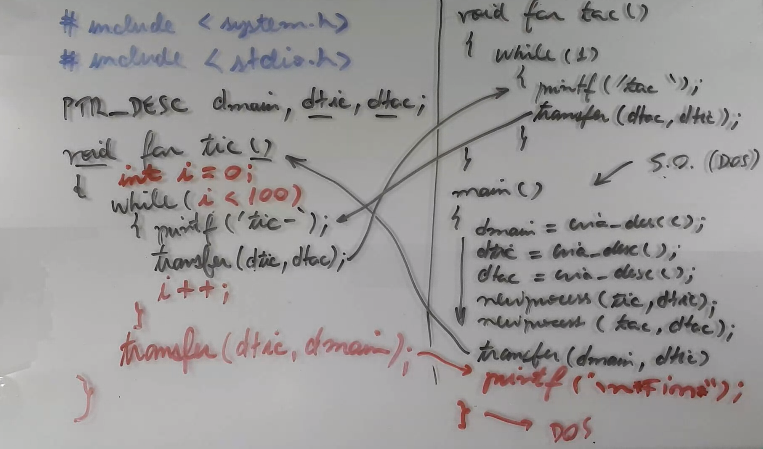 # include <system.h>
# include <stdio.h>
PTR_DESC dmain, dtic, dtac;
void far tic()
{ int i = 0;
while(i < 100)
{ printf('tic-');
transfer(dtic, dtac);
i++;
}
transfer(dtic, dmain);
}
void far tac()
{ while(1)
{ printf('tac');
transfer(dtac, dtic);
}
}
S.O. (DOS)
main()
{ dmain = cria_desc();
dtic = cria_desc();
dtac = cria_desc();
newprocess(tic, dtic);
newprocess(tac, dtac);
transfer(dmain, dtic)
printf("\n*Fim*");
} → DOS